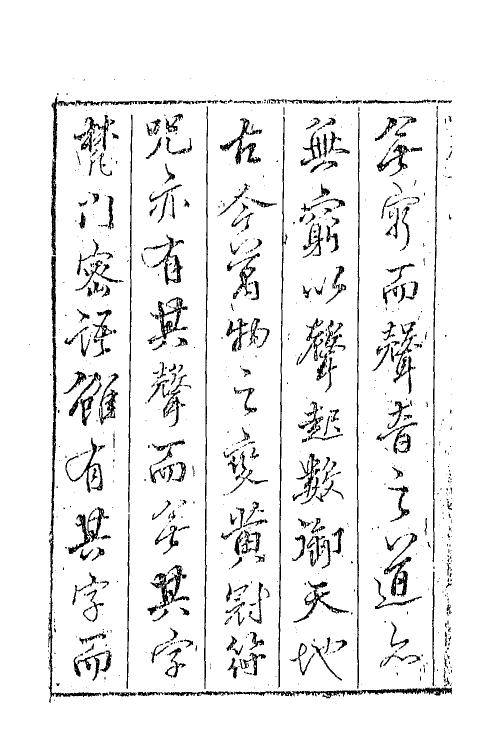 無窮而聲音之道亦
無窮以聲起數御天地
古今萬物之變黃冠符
咒亦有其聲而無其字
梵門密語雖有其字而